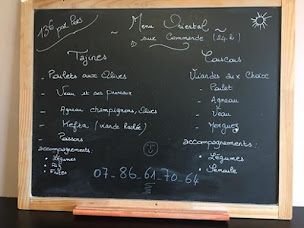 13€ par Pers
~ Menu Oriental ~
sur Commande (24h)
Tajines
- Poulets aux Olives
- Veau et ses pruneaux
- Agneau champignons, Olives
- Kefta (viande hachée)
- Poissons
accompagnements:
- Légumes
- Riz
- Frites
Couscous
Viandes au Choix
- Poulet
- Agneau
- Veau
- Merguez
accompagnements:
- Légumes
- Semoule
07-86-61-70-64